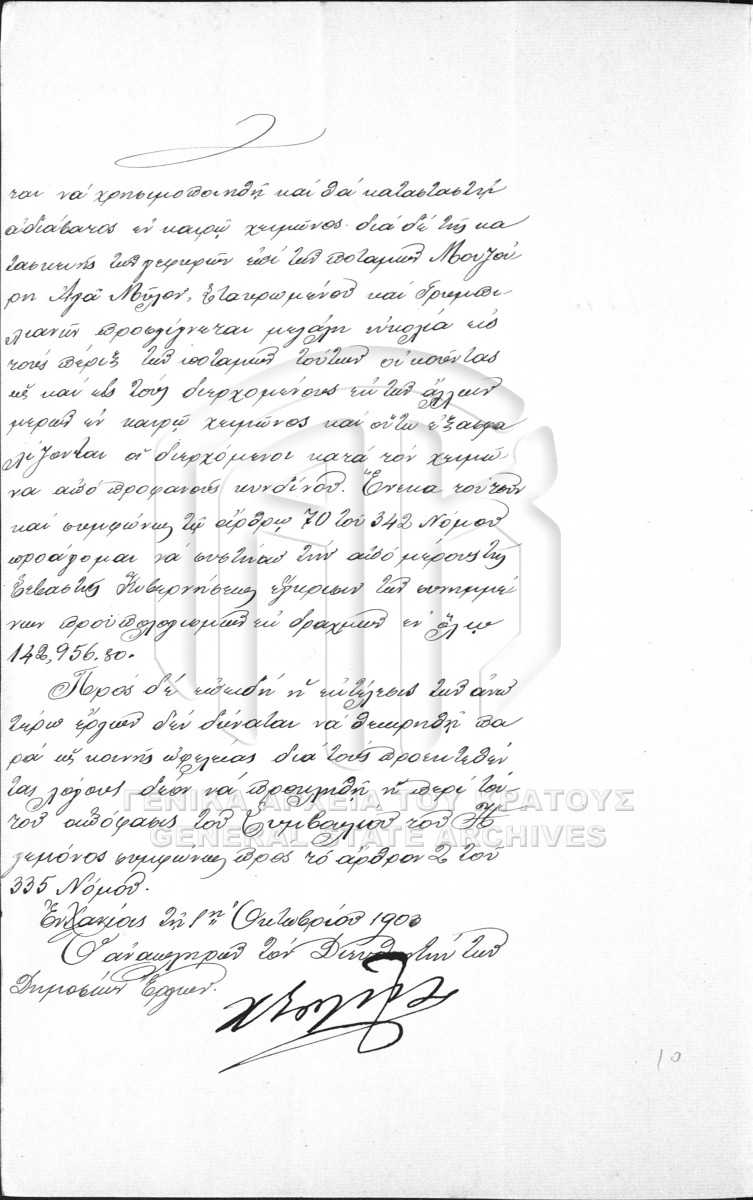 ται νά χρησιμοποιηθῇ καί θά καταστατῇ
ἀδιάβατος ἐν καιρῷ χειμῶνος· διά δέ τῆς κα
τασκευῆς τῶν γεφυρῶν ἐπί τῶν ποταμῶν Μουζού
ρη Ἀγᾶ Μύλον, Σταυρωμένου καί
προσγίγνεται μεγάλη εὐκολία εἰς
τούς πέριξ τῶν ποταμῶν τούτων οἰκοῦντας
ὡς καί εἰς τούς διερχομένους ἐκ τῶν ἄλλων
μερῶν ἐν καιρῷ χειμῶνος καί οὕτω ἐξασφα
λίζονται οἱ διερχόμενοι κατά τόν χειμῶ
να ἀπό προφανοῦς κινδύνου. Ἕνεκα τούτων
καί συμφώνως τῷ ἄρθρῳ 70 τοῦ 342 Νόμου
προάγομαι νά συστήσω τήν ἀπό μέρους τῆς
Σεβαστῆς Κυβερνήσεως ἔγκρισιν τῶν συνημμέ
νων προϋπολογισμῶν ἐκ δραχμῶν ἐν ὅλῳ
142,956.80.
Πρός δέ ἐπειδή ἡ ἐκτέλεσις τῶν ἀνω
τέρω ἔργων δέν δύναται νά θεωρηθῇ πα
ρά ὡς κοινῆς ὠφελείας διά τούς προεκτεθέν
τας λόγους δέον νά προκληθῇ ἡ περί τού
του ἀπόφασις τοῦ Συμβουλίου τοῦ Ἡ
γεμόνος συμφώνως πρός τό ἄρθρον 2 τοῦ
335 Νόμου.
Ἐν Χανίοις τῇ 1ῃ Ὀκτωβρίου 1903
Ὁ ἀναπληρῶν τόν Διευθυντήν τῶν
Δημοσίων Ἔργων.
10
ΓΕΝΙΚΑ ΑΡΧΕΙΑ ΤΟΥ ΚΡΑΤΟΥΣ
GENERAL STATE ARCHIVES